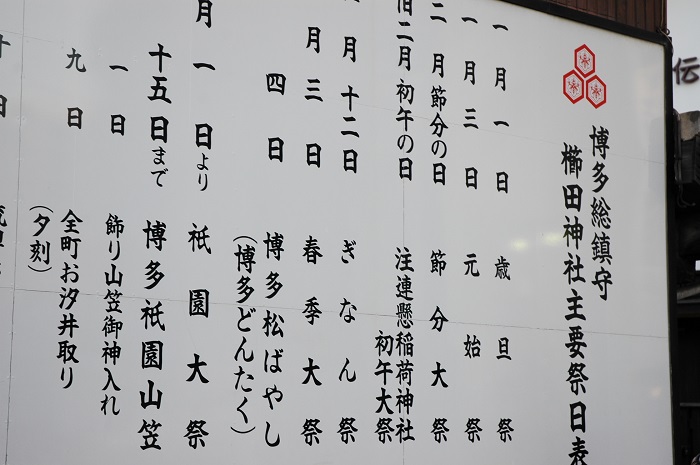 博多総鎮守
櫛田神社主要祭日表
一月一日 歳旦祭
一月三日 元始祭
二月節分の日 節分大祭
旧二月初午の日 注連懸稲荷神社
初午大祭
月十二日 ぎなん祭
月三日 春季大祭
四日 博多松ばやし
(博多どんたく)
月一日より 祇園大祭
十五日まで 博多祇園山笠
一日 飾り山笠御神入れ
九日 全町お汐井取り
(夕刻)
十日
伝